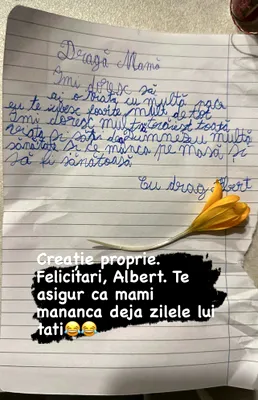 Dragă Mamă
Îmi doresc să
ai o viață cu multă pace
eu te iubesc foarte mult de tot
Îmi doresc mult să trăiești toată
viața și să-ți dea Dumnezeu multă
sănătate și ce mânca pe masă și
să fi sănătoasă
Cu drag Albert
Creatie proprie.
Felicitari, Albert. Te
asigur ca mami
mananca deja zilele lui
tati😂😂